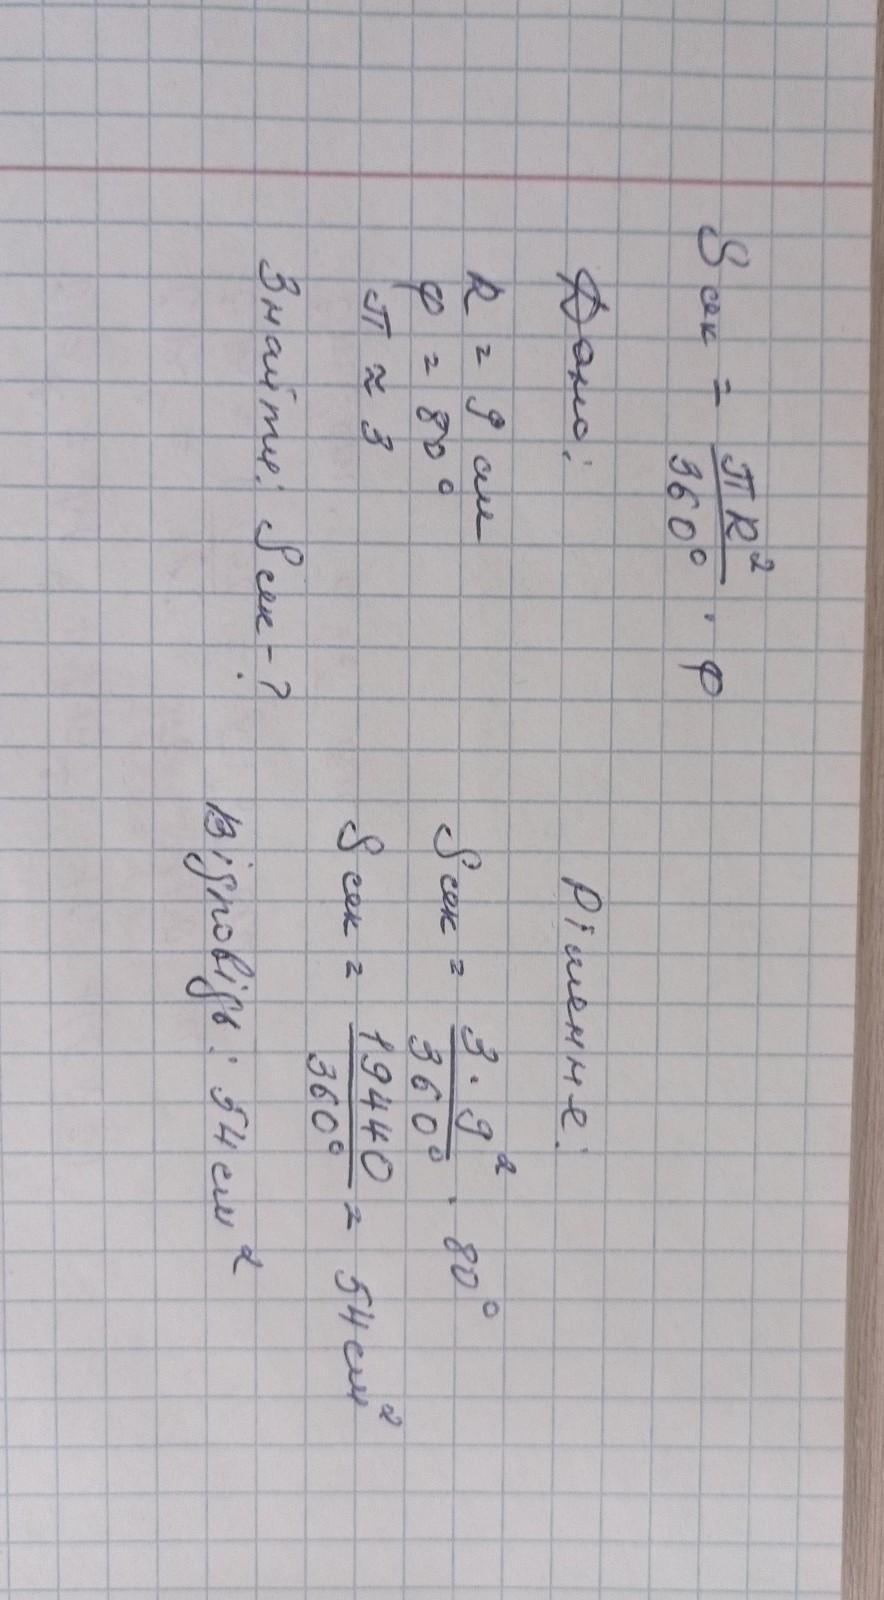 Sсек = πR²/360° · φ
Дано:
R = 9 см
φ = 80°
π ≈ 3
Знайти: Sсек - ?
Рішення:
Sсек = 3 · 9²/360° · 80°
Sсек = 19440/360° = 54 см²
Відповідь: 54 см²